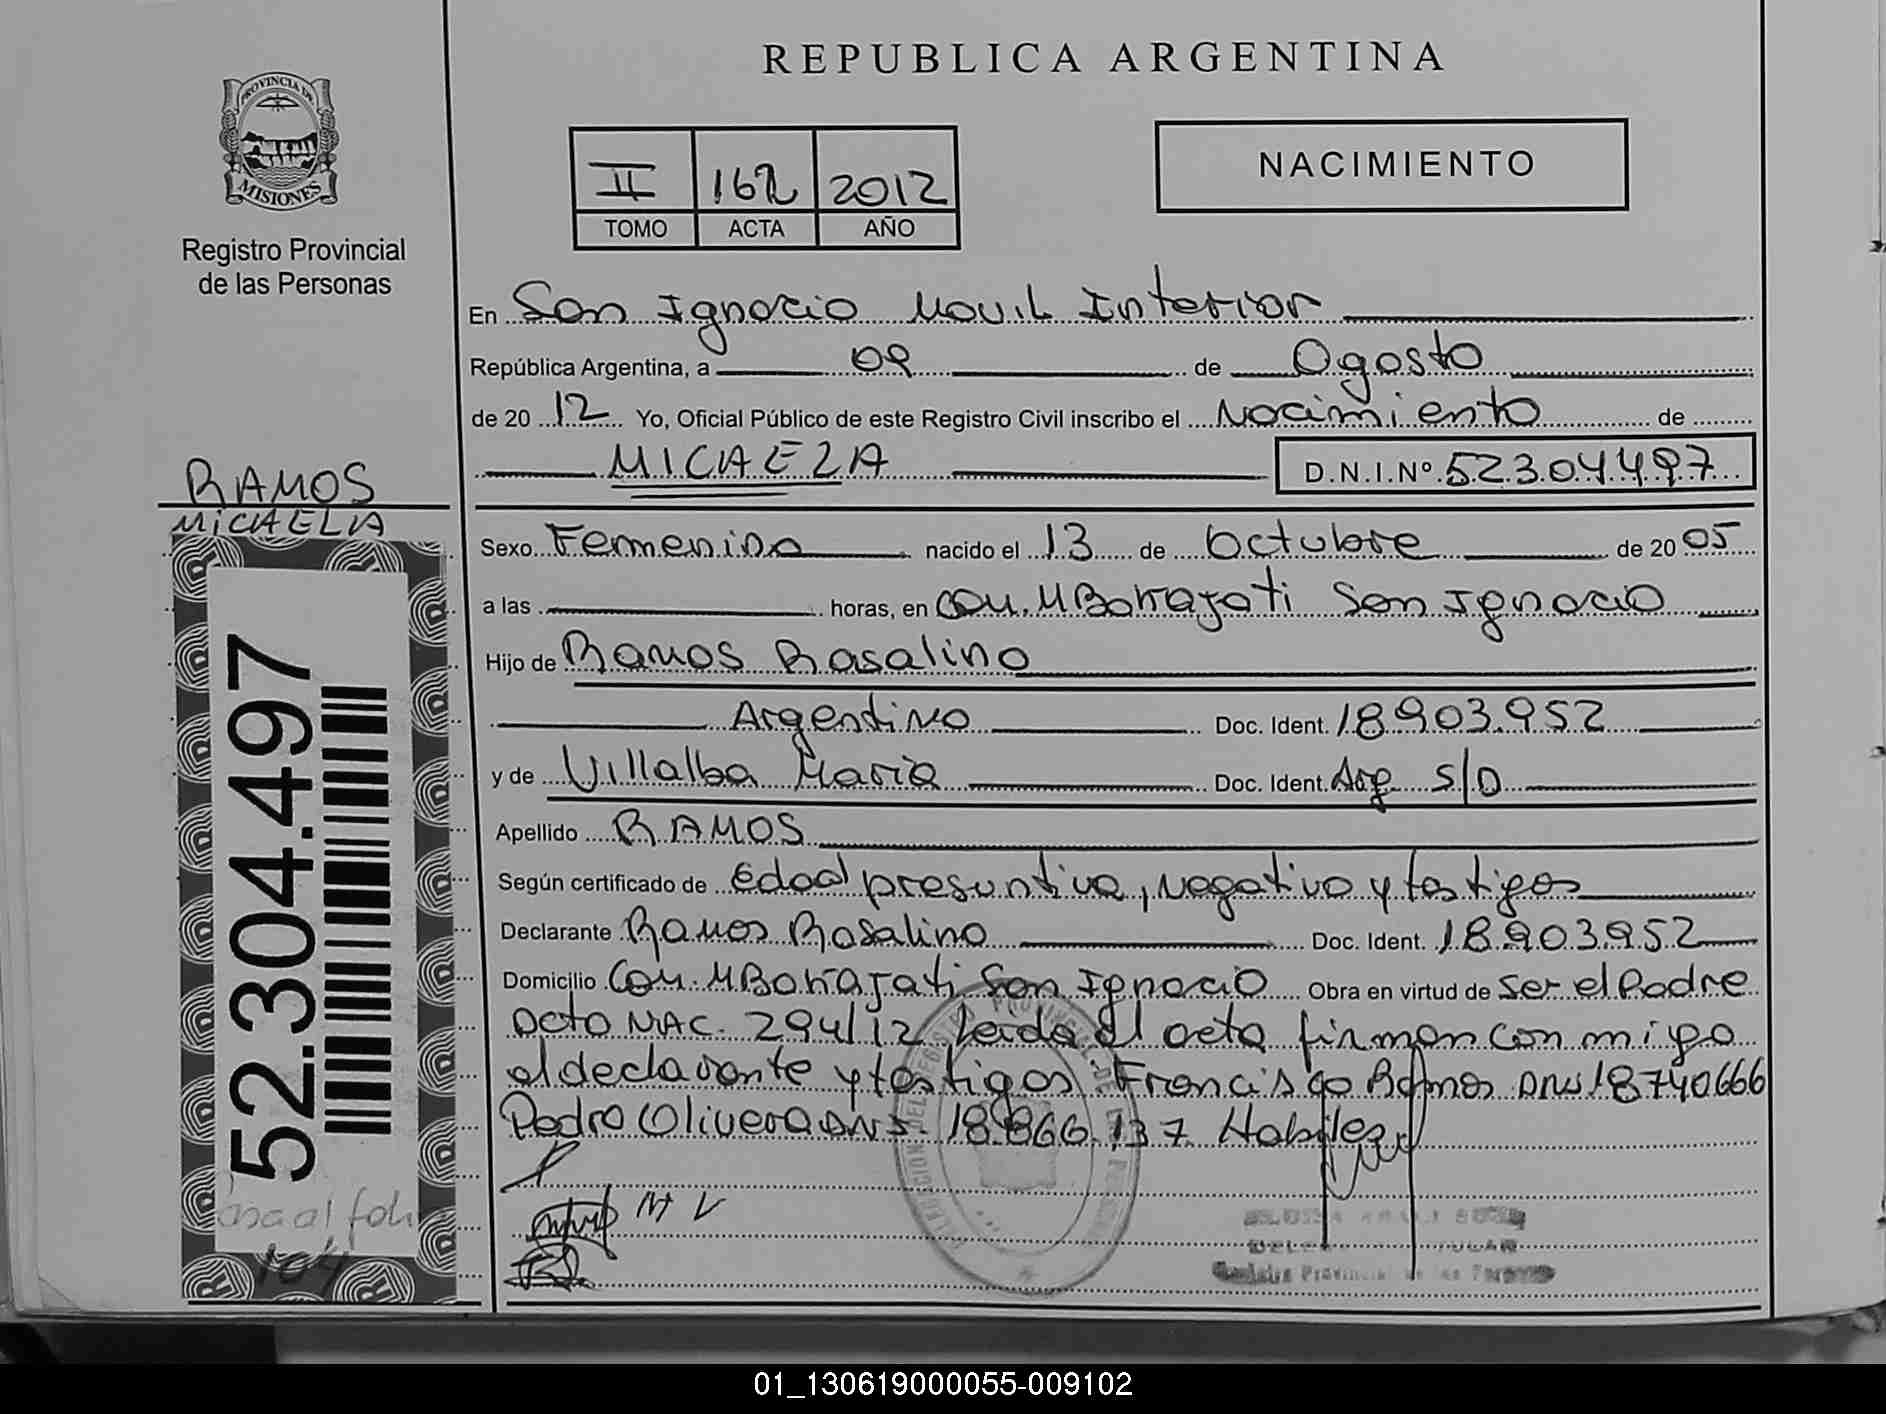 REPUBLICA ARGENTINA
PROVINCIA DE
MISIONES
Registro Provincial
de las Personas
II 162 2012
TOMO ACTA AÑO
NACIMIENTO
En San Ignacio Movil Interior
República Argentina, a 09 de Agosto
de 20 12 Yo, Oficial Público de este Registro Civil inscribo el Nacimiento de
MICAELA D.N.I.Nº 52.304.497
RAMOS
MICAELIA
Sexo Femenino nacido el 13 de Octubre de 20 05
a las horas, en Com. MBokajati San Ignacio
Hijo de Ramos Rosalino
Argentino Doc. Ident. 18.903.952
y de Villalba Maria Doc. Ident. Arg. S/D
Apellido RAMOS
Según certificado de edad presuntiva, negativo y testigos
Declarante Ramos Rosalino Doc. Ident. 18.903.952
Domicilio Com. MBokajati San Ignacio Obra en virtud de ser el Padre
Acto NAC. 294/12 Leida el acta firman conmigo
el declarante y testigos Francisco Ramos DNI 18740666
Pedro Olivera DNI. 18.866.137 Habiles
M V
52.304.497
pasa al folio
104
01_130619000055-009102